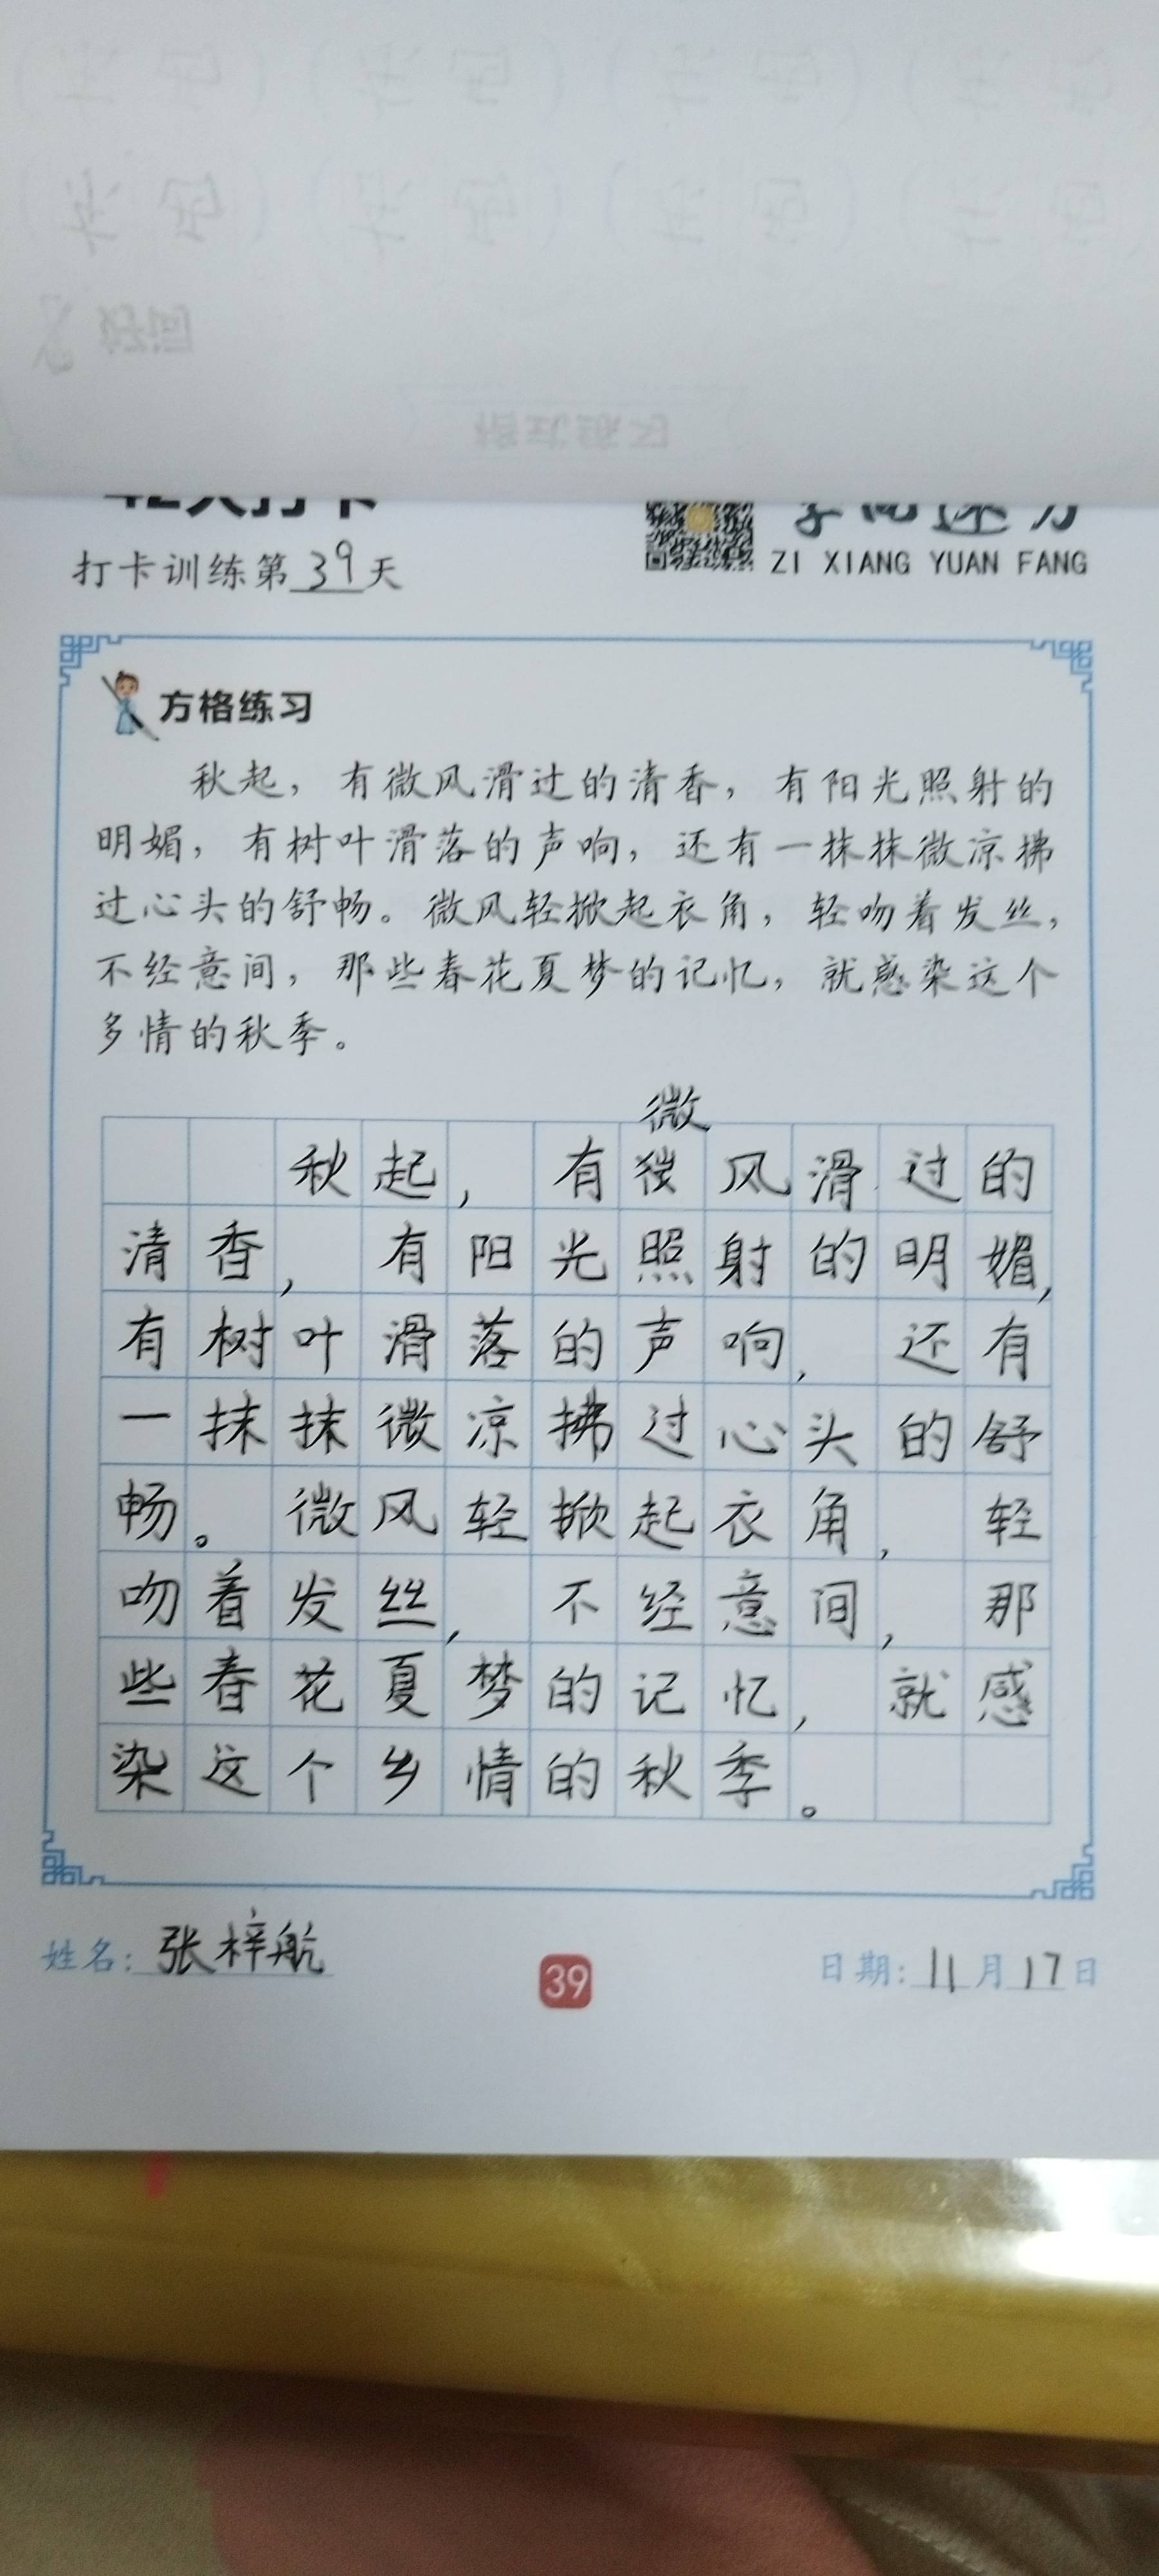 打卡训练第39天
ZI XIANG YUAN FANG
方格练习
秋起，有微风滑过的清香，有阳光照射的
明媚，有树叶滑落的声响，还有一抹抹微凉拂
过心头的舒畅。微风轻掀起衣角，轻吻着发丝，
不经意间，那些春花夏梦的记忆，就感染这个
多情的秋季。
微
秋起，有风滑过的
清香，有阳光照射的明媚，
有树叶滑落的声响，还有
一抹抹微凉拂过心头的舒
畅。微风轻掀起衣角，轻
吻着发丝，不经意间，那
些春花夏梦的记忆，就感
染这个乡情的秋季。
姓名：张梓航
39
日期：11月17日